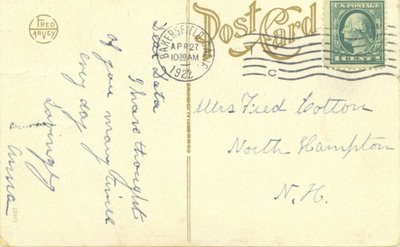 FRED
HARVEY
Post Card
BAKERSFIELD
APR 27
10 30 AM
1922
1 CENT 1
Dear
I have thought
of you many times
every day
Lovingly
Anna
Mrs Fred Cotton
North Hampton
N. H.